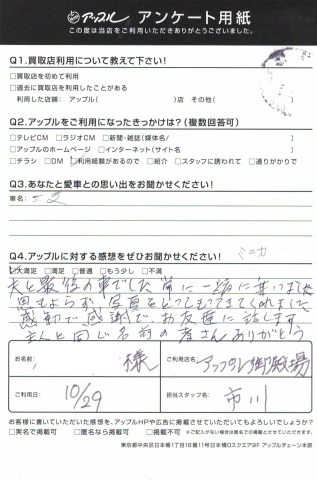 アップル アンケート用紙
この度は当店をご利用いただきありがとうございました。
Q1.買取店利用について教えて下さい!
□買取店を初めて利用
□過去に買取店を利用したことがある
利用した店舗: アップル( )店 その他( )
Q2.アップルをご利用になったきっかけは?(複数回答可)
□テレビCM □ラジオCM □新聞・雑誌(媒体名/ )
□アップルのホームページ □インターネット(サイト名 )
□チラシ □DM □利用経験があるので □紹介 □スタッフに誘われて □通りがかりで
Q3.あなたと愛車との思い出をお聞かせください!
車名:
Q4.アップルに対する感想をぜひお聞かせください!
□大満足 □満足 □普通 □もう少し □不満
夫と最後の車でした 常に一緒に乗って
思もよらず 写真をとってもってきてくれました
感動で感謝で お友達に話します
主人と同じ名前の店さんありがとう
お名前: 様
ご利用店名: アップル御殿場
ご利用日: 10/29
担当スタッフ名: 市川
お客様に書いていただいた感想を、アップルHPや広告に掲載させていただいてもよろしいでしょうか?
□実名で掲載可 □匿名なら掲載可 □掲載不可 ※ご記入がない場合は匿名での掲載とさせていただきます。
東京都中央区日本橋1丁目16番11号日本橋Dスクエア9F アップルチェーン本部